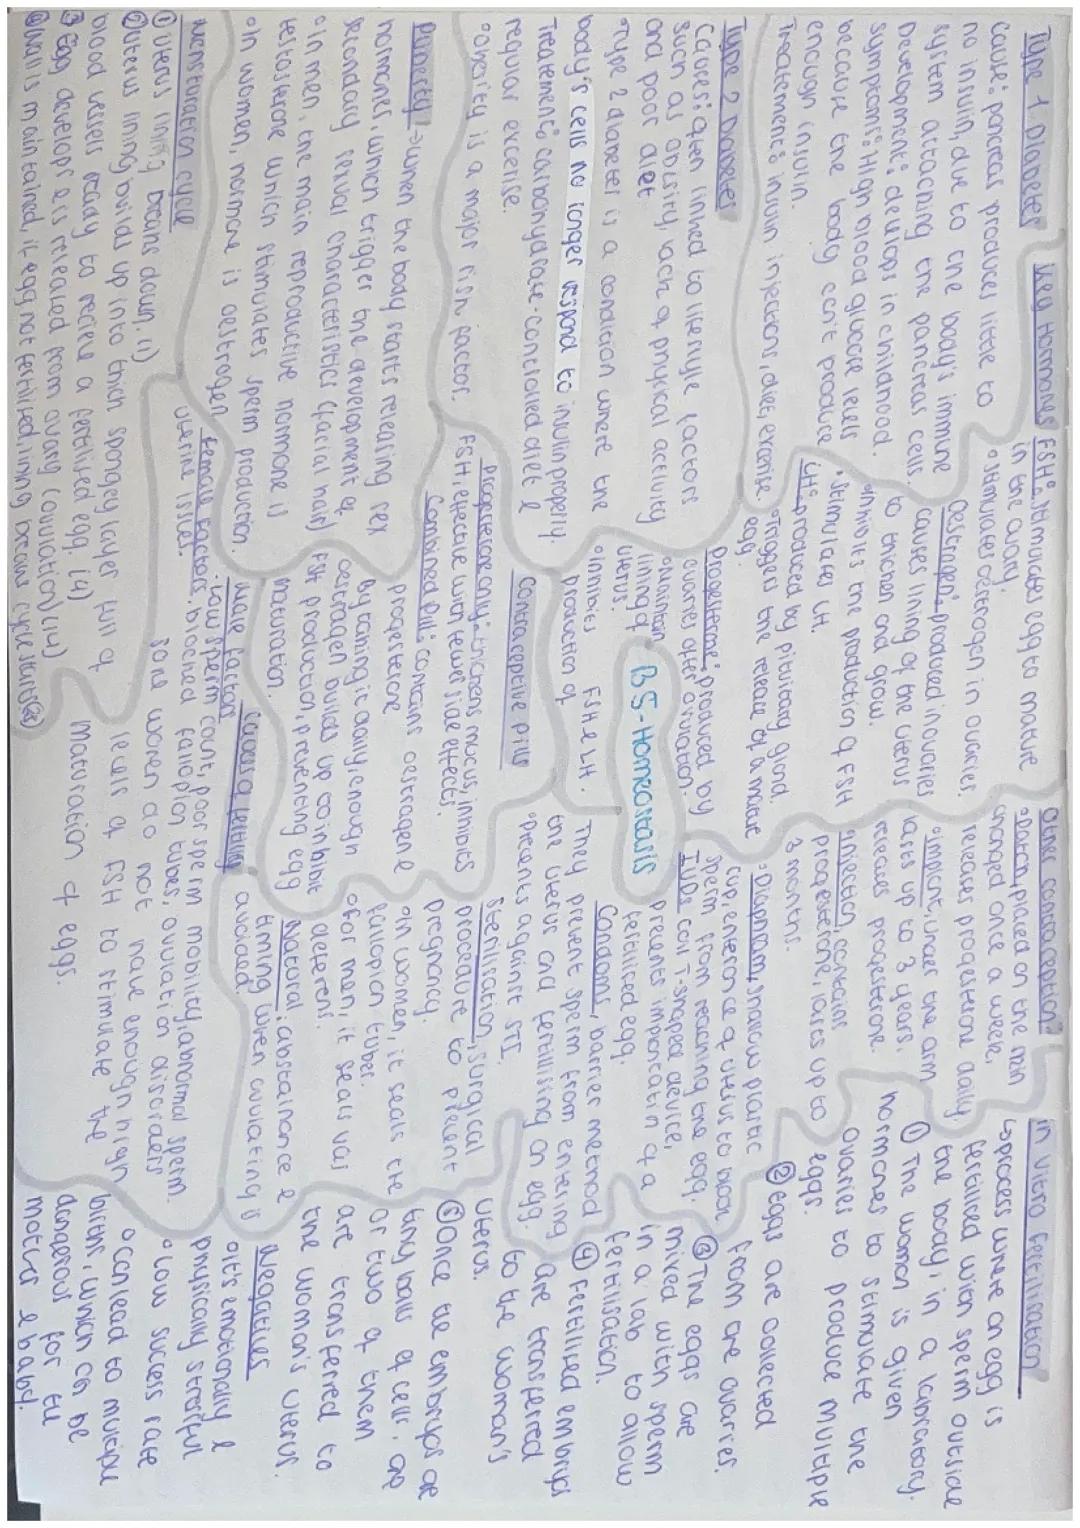 Type 1 Diabetes
cause: pancreas produces little to
no insulin, due to the body's immune
system attacking the pancreas cells
Development: develops in childhood.
symptoms: High blood glucose levels
because the body can't produce
enough insulin.
Treatement: insulin injections, diet, exercise.
Type 2 Diabetes
Causes: often linked to lifestyle factors
such as obisity, lack of physical activity
and poor diet
Type 2 diabetes is a condition where the
body's cells no longer respond to insulin properly.
Treatement: carbohydrate-controlled diet &
regular excerise.
Obesity is a major risk factor.
Puberty → when the body starts releasing sex
hormones, which trigger the development of
secondary sexual characteristics (facial hair)
in men, the main reproductive hormone is
testosterone which stimulates sperm production.
in women, hormone is oestrogen
menstruation cycle
① Uterus lining breaks down. (1)
② Uterus lining builds up into thick spongey layer full of
blood vessels ready to recieve a fertilised egg. (4)
③ Egg develops & is released from ovary (ovulation) (14)
④ Wall is maintained, if egg not fertilised, lining breaks cycle starts (28)
Key Hormones
FSH: stimulates egg to mature
in the ovary.
stimulates oestrogen in ovaries.
Oestrogen: produced in ovaries
causes lining of the uterus
to thicken and grow.
inhibits the production of FSH
stimulates LH.
LH: produced by pituitary gland.
Triggers the release of a mature
egg.
Progesterone: produced by
ovaries after ovulation.
maintain
lining of
uterus.
inhibits FSH & LH.
production of
B5-Homeostasis
Contraceptive pills
progesterone only: thickens mucus, inhibits
FSH, effective with fewer side effects.
Combined pill: contains oestrogen &
progesterone
By taking it daily, enough
oestrogen builds up to inhibit
FSH production, preventing egg
maturation.
Causes of fertility
male factors
low sperm count, poor sperm mobility, abnormal sperm.
Female factors, blocked fallopian tubes, ovulation disorders
uterine issues.
Some women do not have enough high
levels of FSH to stimulate the
maturation of eggs.
Other contraception?
patch, placed on the skin
changed once a week,
releases progesterone daily
implant, under the arm
lasts up to 3 years.
releases progesterone.
injection, contains
progesterone, lasts up to
3 months.
Diaphram, shallow plastic
cup, enterance of uterus to block
sperm from reaching the egg.
IUD: coil T-shaped device,
prevents implantation of a
fertilised egg.
Condoms, barrier method
They prevent sperm from entering
the uterus and fertilising an egg.
Prevents against STI
Sterilisation, surgical
procedure to prevent
pregnancy.
in women, it seals the
fallopian tubes.
for men, it seals vas
deferens.
Natural: abstainance &
timing when ovulating is
avoided
in vitro fertilisation
↳ process where an egg is
fertilised with sperm outside
the body, in a labratory.
① The woman is given
hormones to stimulate the
ovaries to produce multiple
eggs.
② Eggs are collected
from the ovaries.
③ The eggs are
mixed with sperm
in a lab to allow
fertilisation.
④ Fertilised embryos
are transfered
to the woman's
uterus.
⑤ Once the embryos are
tiny balls of cells, do
or two of them
are transferred to
the woman's uterus.
Negatives
it's emotionally &
physically stressful
low success rate
can lead to multiple
births, which can be
dangerous for the
mother & baby.